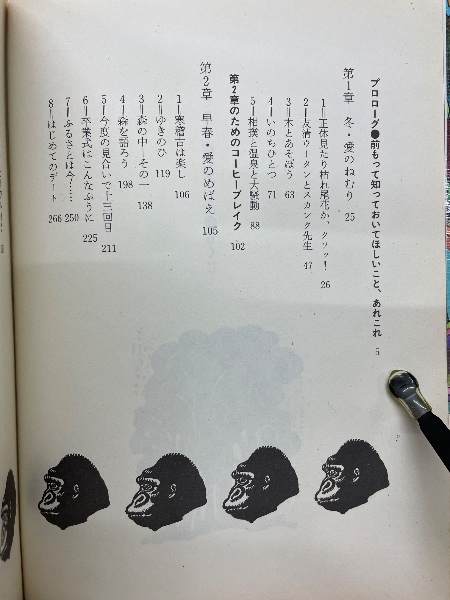 プロローグ●前もって知っておいてほしいこと、あれこれ 5
第1章 冬・愛のねむり 25
1=正体見たり枯れ尾花か、クソッ! 26
2=友清ウータンとスカンク先生 47
3=木とあそぼう 63
4=いのちひとつ 71
5=相撲と温泉と大騒動 88
第2章のためのコーヒーブレイク 102
第2章 早春・愛のめばえ 105
1=寒稽古は楽し 106
2=ゆきのひ 119
3=森の中・その一 138
4=森を語ろう 198
5=今度の見合いで十三回目 211
6=卒業式はこんなふうに 225
7=ふるさとは今…… 250
8=はじめてのデート 266